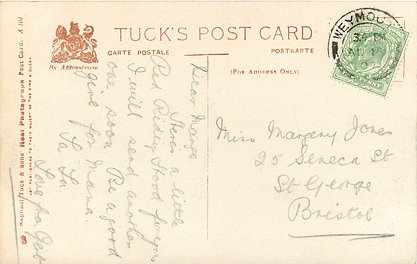 TUCK'S POST CARD
CARTE POSTALE
POSTKARTE
By Appointment
(FOR ADDRESS ONLY)
Dear Marge
Here's a little
Red Riding Hood for you
I will send another
one soon Be a good
girl for Mama
Ta Ta
Love fra
Miss Margery Jones
25 Seneca St
St George
Bristol
WEYMOU
Raphael Tuck & Sons' Real Photograph Post Card.